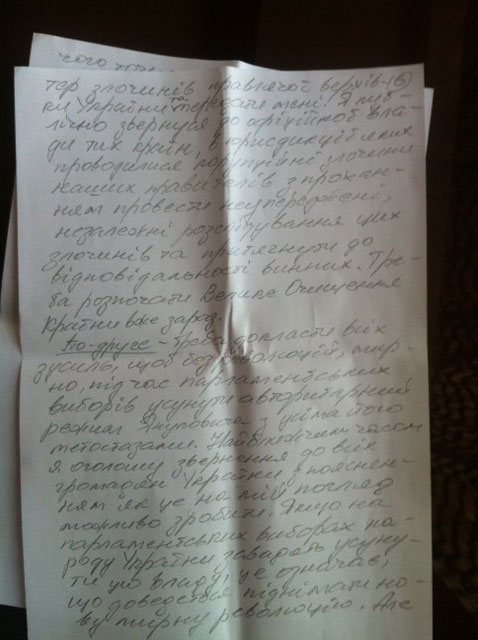 чого
тер злочинів правлячої верхів- (6)
ки України та передати мені. Я пуб-
лічно звернуся до офіційної вла-
ди тих країн, в юрисдикції яких
проводилися корупційні злочини
наших правителів з прохан-
ням провести неупереджені,
незалежні розслідування цих
злочинів та притягнути до
відповідальності винних. Тре-
ба розпочати Велике Очищення
країни вже зараз.
По-друге – треба докласти всіх
зусиль, щоб без революцій, мир-
но, під час парламентських
виборів усунути авторитарний
режим Януковича з усіма його
метастазами. Найближчим часом
я оголошу звернення до всіх
громадян України з пояснен-
ням як це на мій погляд
можливо зробити. Якщо на
парламентських виборах на-
роду України завадять усуну-
ти цю владу, це означає,
що доведеться піднімати но-
ву мирну революцію. Але